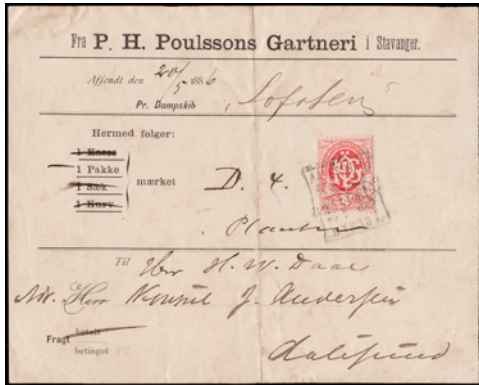 Fra P. H. Poulssons Gartneri i Stavanger.
Affendt den 20/5 1886
Pr. Dampskib „Lofoten"
Hermed følger:
1 Kasse
1 Pakke
1 Sæk
1 Kurv
mærket
D. 4.
Planter
Til Herr H. W. Daae
Adr. Herr Konsul J. Andersen
Fragt betalt
betinget
Aalesund